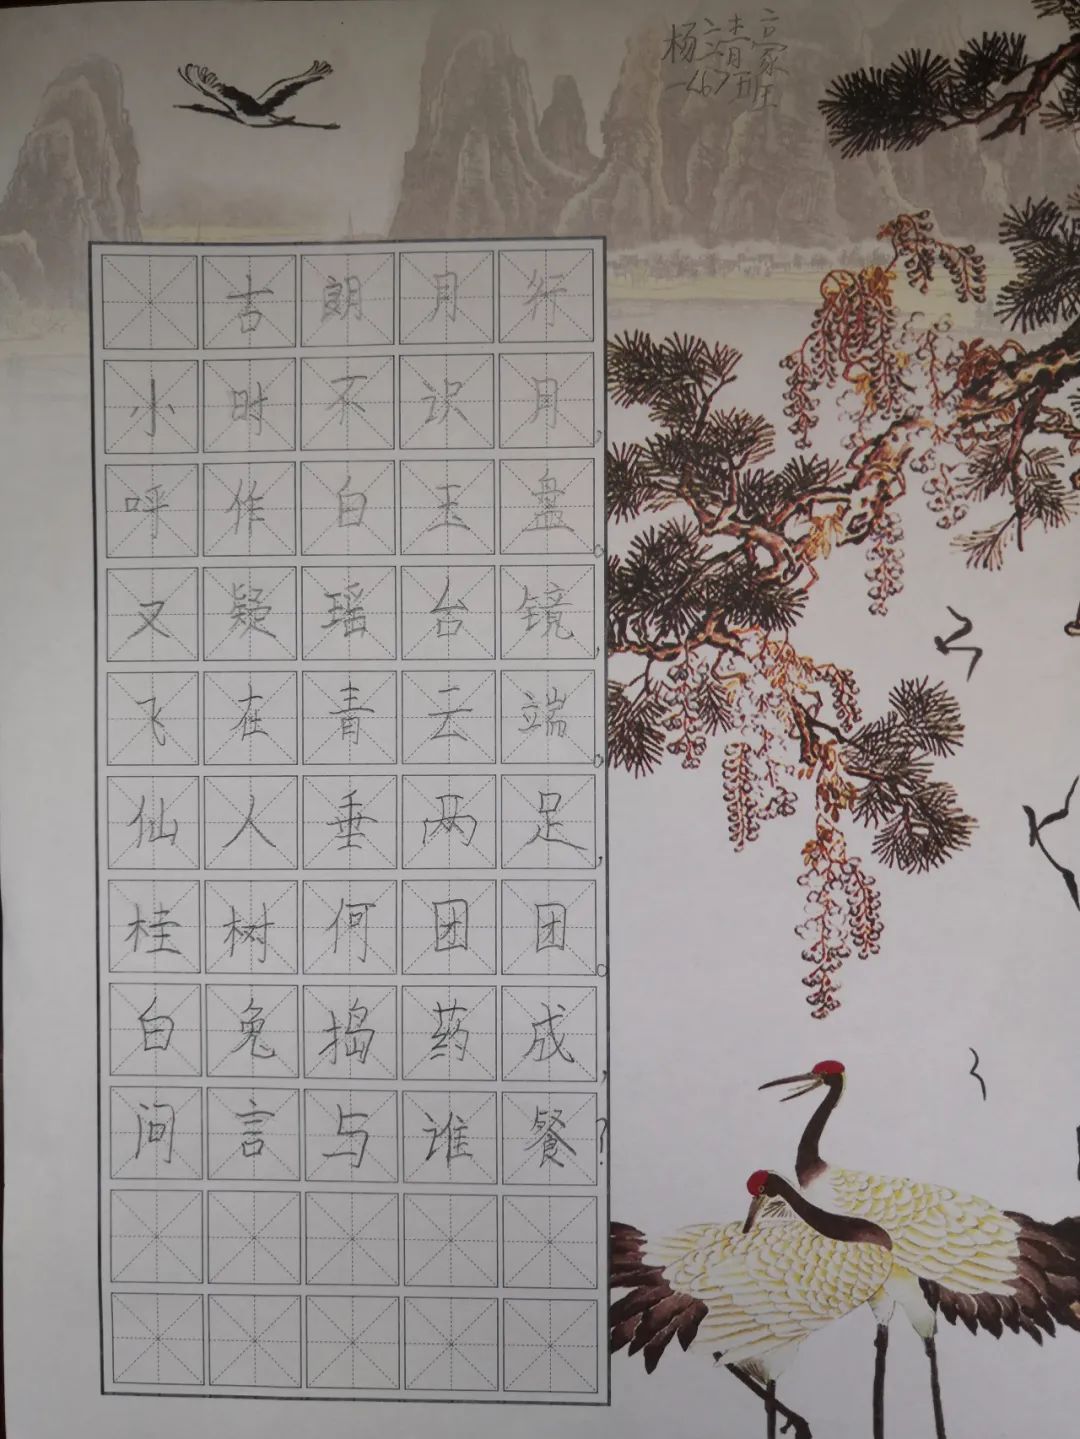 杨靖豪
一167班
古朗月行
小时不识月,
呼作白玉盘。
又疑瑶台镜,
飞在青云端。
仙人垂两足,
桂树何团团。
白兔捣药成,
问言与谁餐?